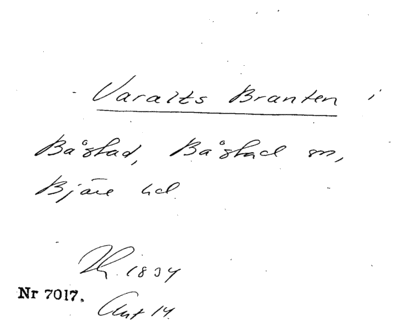 Varalts Branten i
Båstad, Båstad sn,
Bjäre hd
1834
Nr 7017.
Ant 14.